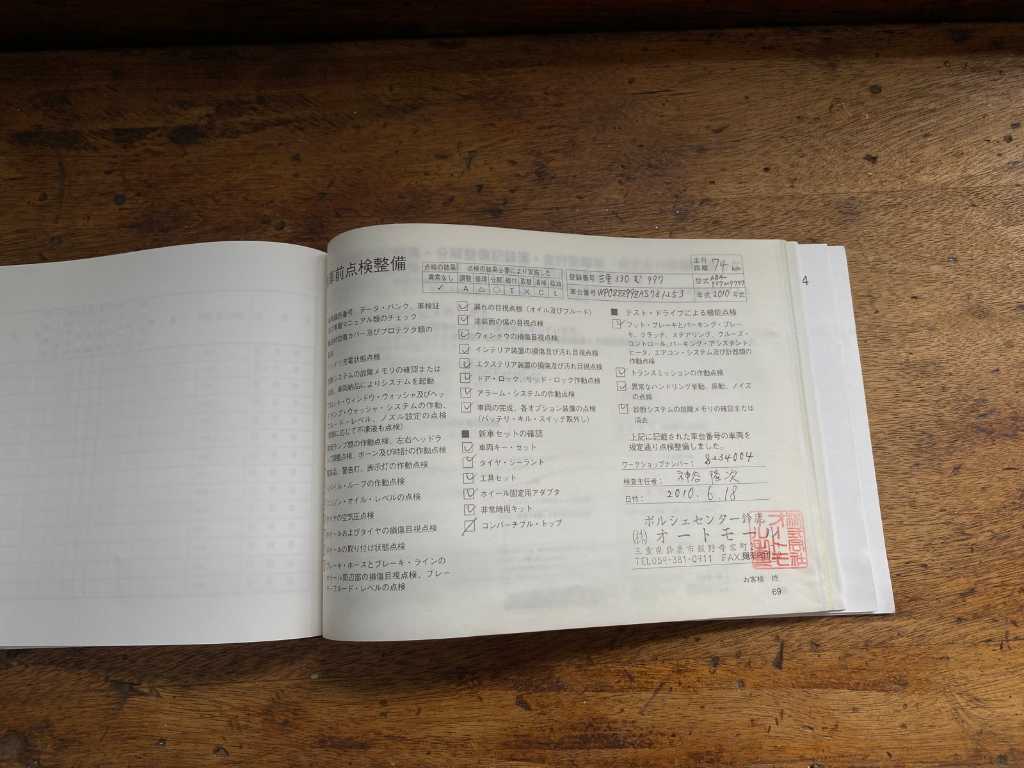 車前点検整備
点検の結果 点検の結果必要により実施した
異常なし 調整 修理 分解 締付 交換 清掃 給油
✓ A △ ○ T X C L
登録番号 三重 330
車台番号
走行距離 74 km
型式
年式 2010 年式
データ・バンク、車検証
マニュアル類のチェック
カバー及びプロテクタ類の
充電状態点検
システムの故障メモリの確認または
によりシステムを起動
フロント・ウィンドウ・ウォッシャ及びヘッ
ドランプ・ウォッシャ・システムの作動、
フルード・レベル、ノズル設定の点検
に応じて不凍液も点検)
ランプ類の作動点検、左右ヘッドラ
点検、ホーン及び時計の作動点検
警告灯、表示灯の作動点検
ルーフの作動点検
エンジン・オイル・レベルの点検
タイヤの空気圧点検
ホイールおよびタイヤの損傷目視点検
ホイールの取り付け状態点検
ブレーキ・ホースとブレーキ・ラインの
周辺部の損傷目視点検、ブレー
キフルード・レベルの点検
漏れの目視点検(オイル及びフルード)
塗装面の傷の目視点検
ウィンドウの損傷目視点検
インテリア装置の損傷及び汚れ目視点検
エクステリア装置の損傷及び汚れ目視点検
ドア・ロック、リッド・ロック作動点検
アラーム・システムの作動点検
車両の完成、各オプション装備の点検
(バッテリ・キル・スイッチ取外し)
■ 新車セットの確認
車両キー・セット
タイヤ・シーラント
工具セット
ホイール固定用アダプタ
非常時用キット
コンバーチブル・トップ
■ テスト・ドライブによる機能点検
フット・ブレーキとパーキング・ブレー
キ、クラッチ、ステアリング、クルーズ・
コントロール、パーキング・アシスタント、
ヒータ、エアコン・システム及び計器類の
作動点検
トランスミッションの作動点検
異常なハンドリング挙動、振動、ノイズ
の点検
診断システムの故障メモリの確認または
消去
上記に記載された車台番号の車両を
規定通り点検整備しました。
ワークショップナンバー:
検査主任者:
日付: 2010.6.18
ポルシェセンター鈴鹿
㈱オートモール
三重県鈴鹿市飯野寺家町
TEL059-381-0911 FAX
お客様 控
69
4